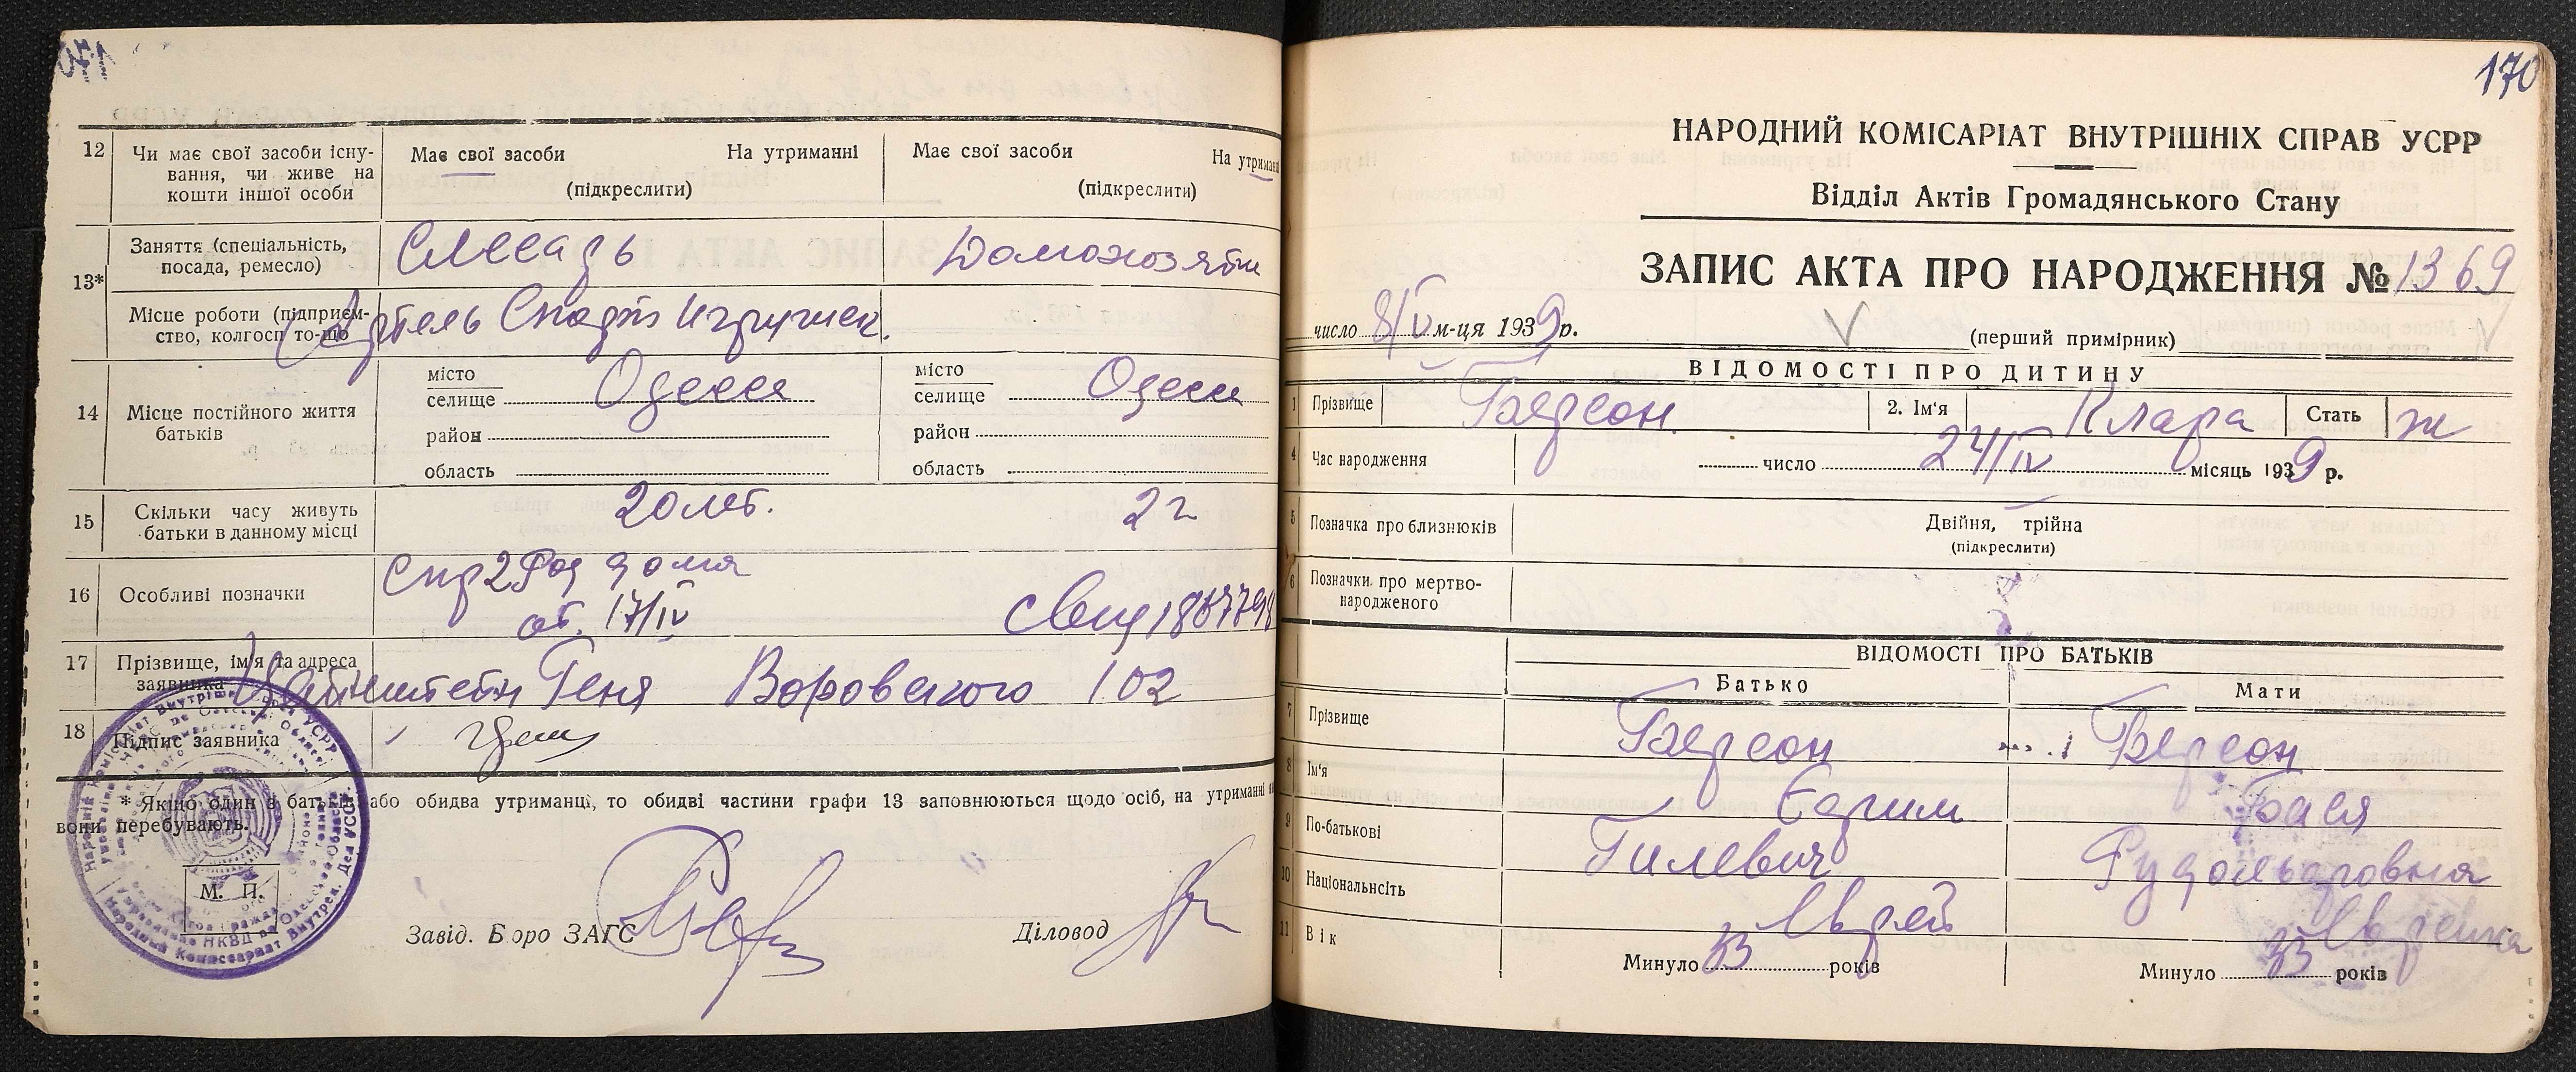 12
Чи має свої засоби існу-
вання, чи живе на
кошти іншої особи
Має свої засоби
На утриманні
(підкреслити)
Має свої засоби
На утриманні
(підкреслити)
13*
Заняття (спеціальність,
посада, ремесло)
Слесарь
Домохозяйк
Місце роботи (підприєм-
ство, колгосп то-що
Артель Игрушек.
14
Місце постійного життя
батьків
місто
селище
Одесса
район
область
місто
селище
Одесса
район
область
15
Скільки часу живуть
батьки в данному місці
20 лет.
2 г
16
Особливі позначки
Спр 2 Род дома
от. 17/IV
17
Прізвище, ім'я та адреса
заявника
Геня Воровского 102
18
Підпис заявника
* Якщо один з батьків або обидва утриманці, то обидві частини графи 13 заповнюються щодо осіб, на утриманні
вони перебувають.
М. П.
Завід. Бюро ЗАГС
Діловод
170
НАРОДНИЙ КОМІСАРІАТ ВНУТРІШНІХ СПРАВ УСРР
Відділ Актів Громадянського Стану
ЗАПИС АКТА ПРО НАРОДЖЕННЯ № 1369
число 8/V м-ця 1939 р.
(перший примірник)
ВІДОМОСТІ ПРО ДИТИНУ
1
Прізвище
Берсон.
2. Ім'я
Клара
Стать
ж
4
Час народження
число 24/IV місяць 1939 р.
5
Позначка про близнюків
Двійня, трійна
(підкреслити)
6
Позначки про мертво-
народженого
ВІДОМОСТІ ПРО БАТЬКІВ
Батько
Мати
7
Прізвище
Берсон
Берсон
8
Ім'я
Ефим
Бася
9
По-батькові
Гилевич
Рудольфовна
10
Національність
Еврей
Еврейка
11
Вік
Минуло 33 років
Минуло 33 років